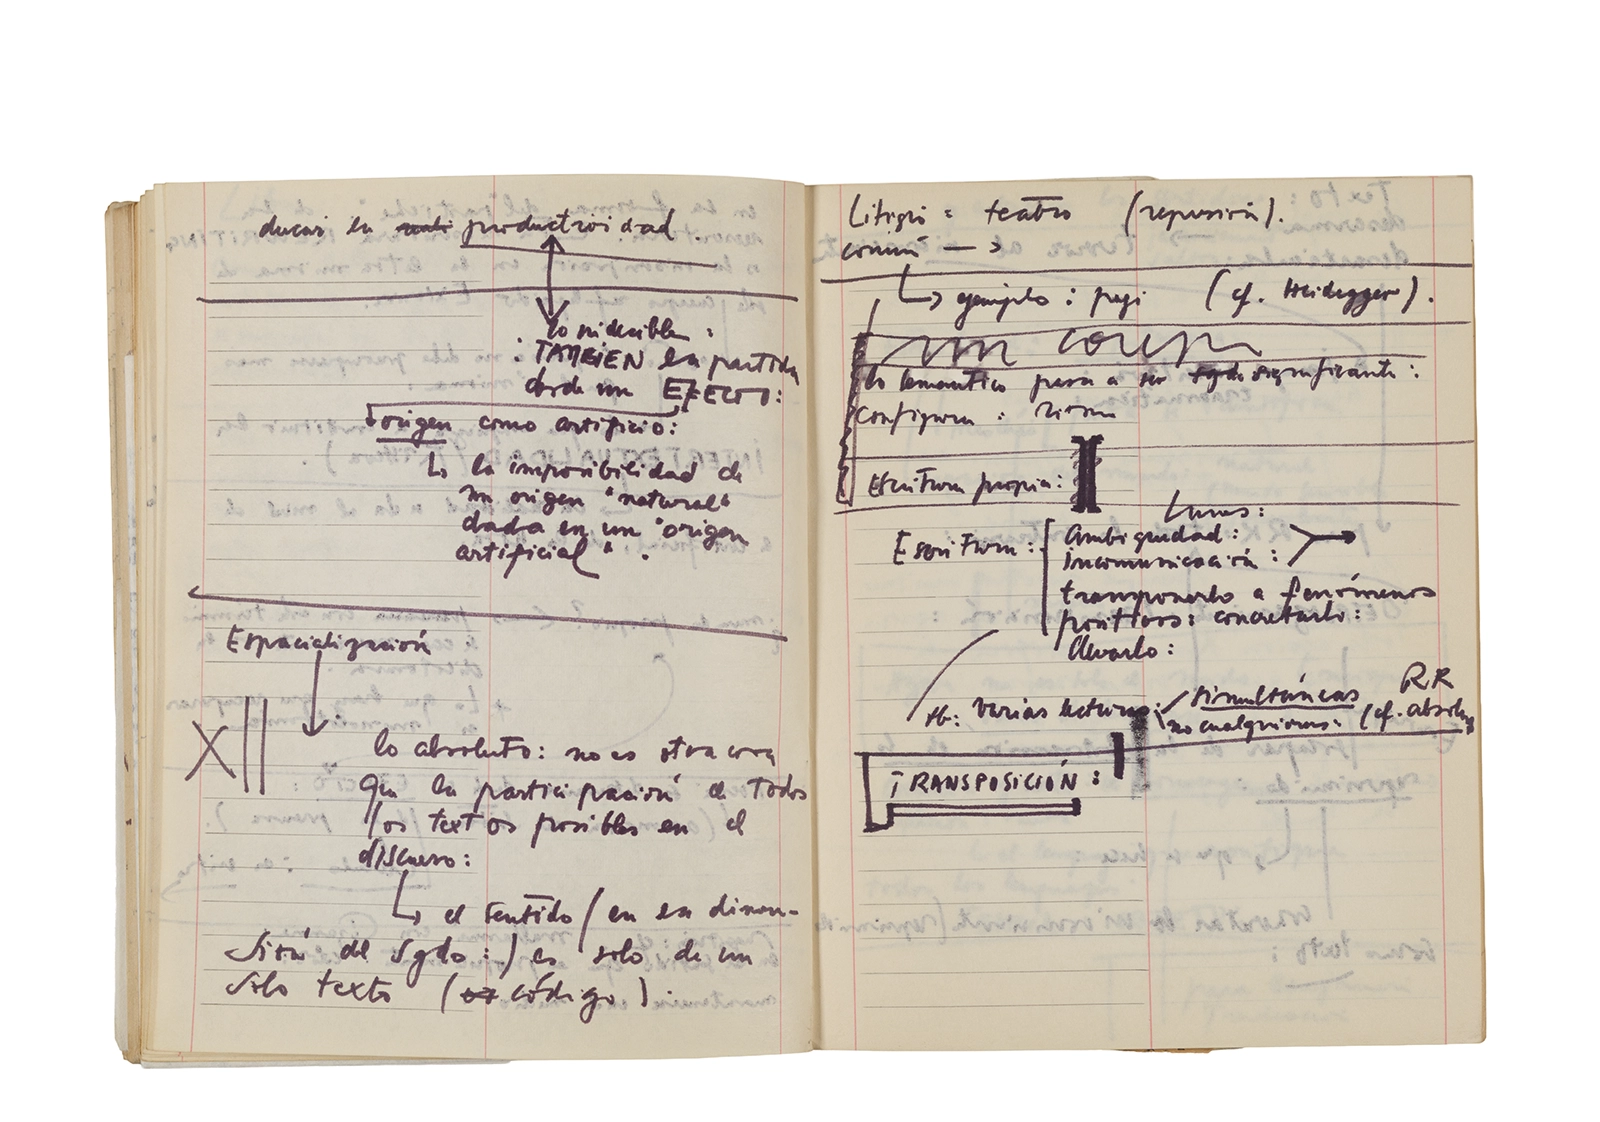 la productividad
lo indecible :
: TAMBIEN la partida
desde un EFECTO :
origen como artificio :
la imposibilidad de
un origen "natural"
dada en un "origen
artificial" .
Espacialización
XII
lo absoluto : no es otra cosa
que la participación de todos
los textos posibles en el
discurso :
el sentido / en su dimen-
sión de sgdo : ) es solo de un
solo texto ( código ) :
Litigio = teatro (reposición).
común →
ejemplo : (cf. Heidegger).
lo semántico pasa a ser significante :
configura :
Escritura propia :
Escritura :
ambigüedad :
incomunicación :
transponerlo a fenómenos
positivos : concretarlo :
llevarlo :
tb: varias lecturas :
simultáneas RR
no cualquiera : (cf. absoluto
TRANSPOSICIÓN :